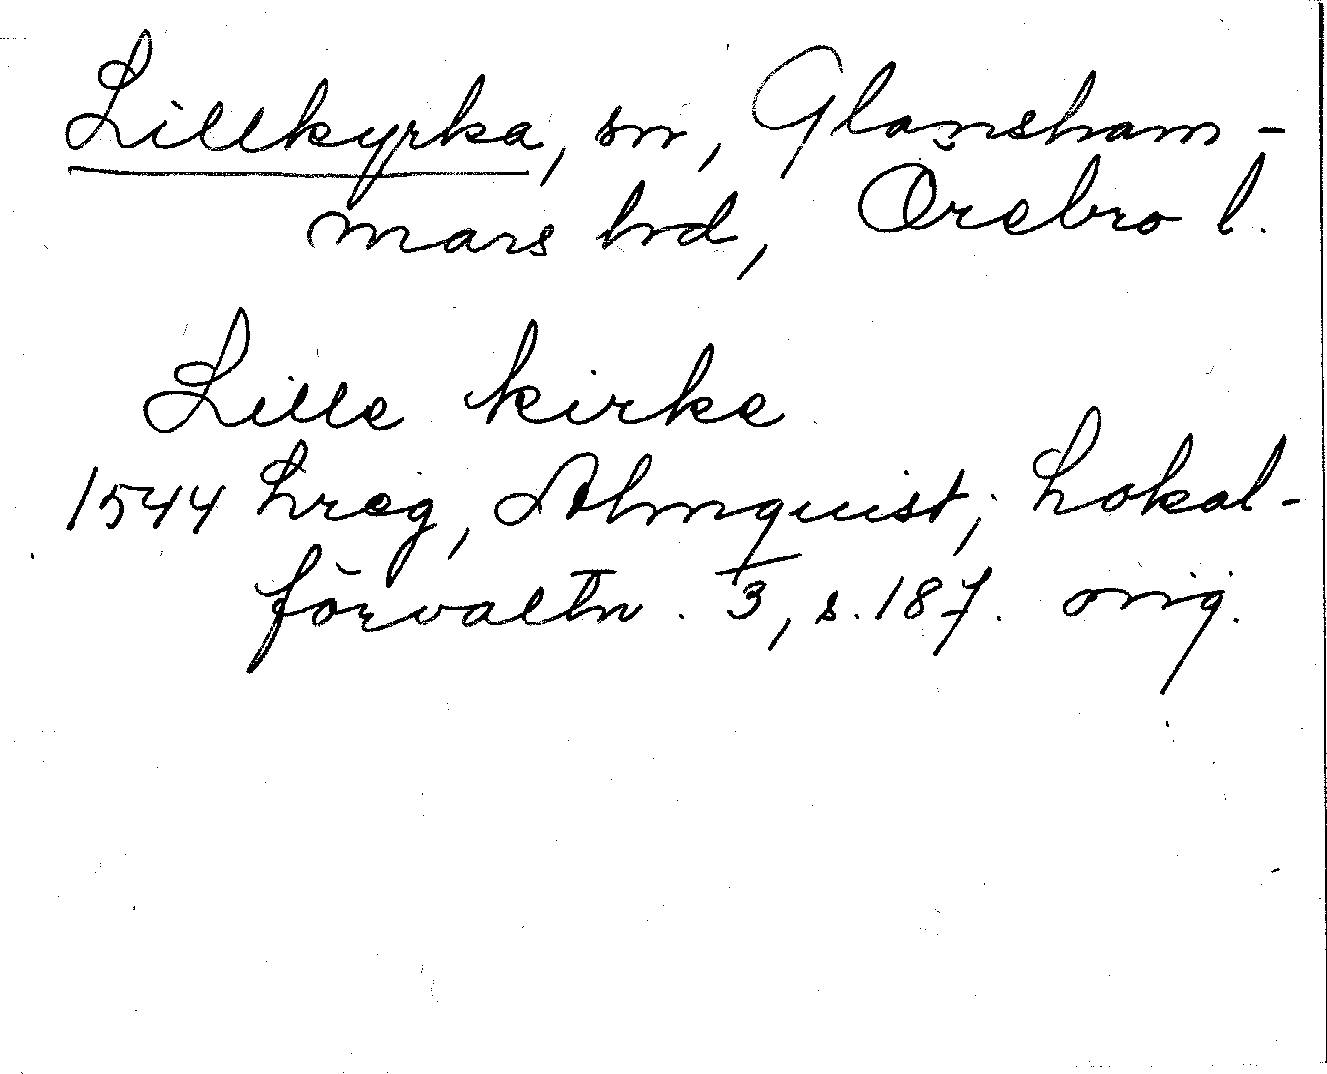 Lillkyrka, sn, Glansham-
mars hrd, Örebro l.
Lille kirke
1544 Lreg, Almquist, Lokal-
förvaltn. 3, s. 187. orig.